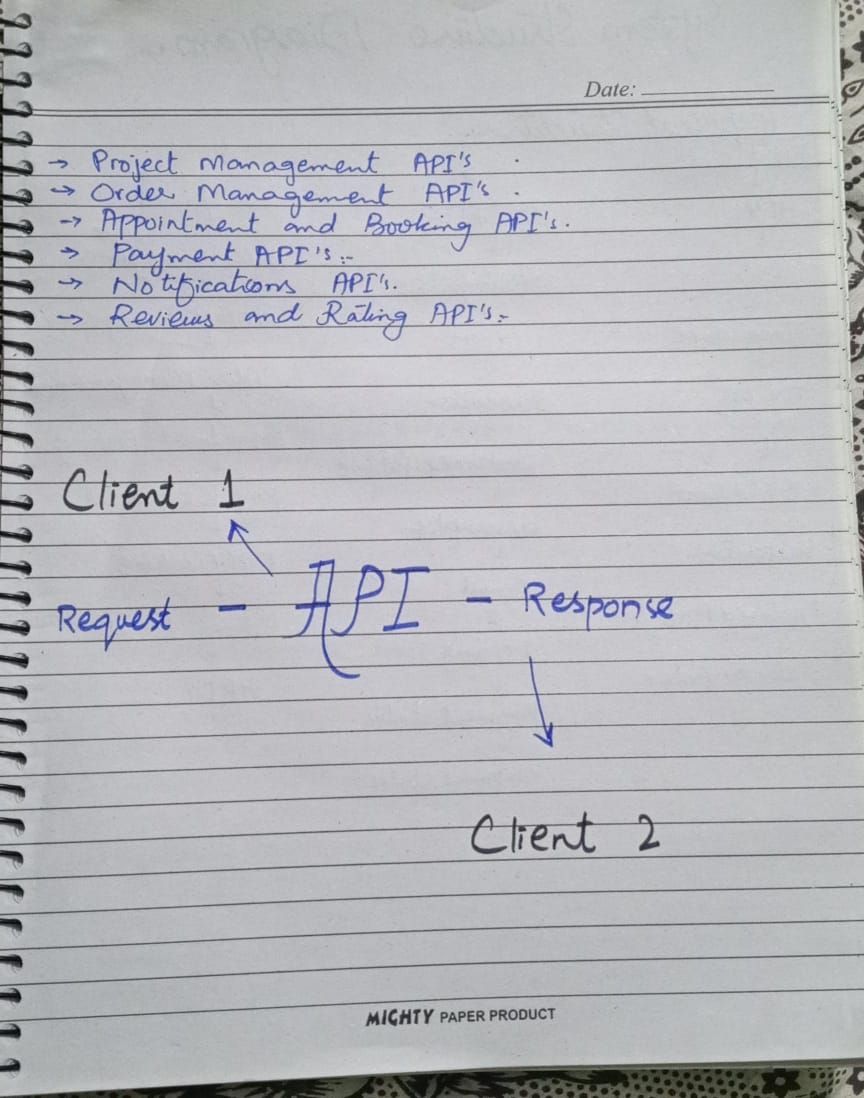 Date:
→ Project Management API's
→ Order Management API's
→ Appointment and Booking API's.
→ Payment API's :-
→ Notifications API's.
→ Reviews and Rating API's :-
Client 1
Request - API - Response
Client 2
MIGHTY PAPER PRODUCT